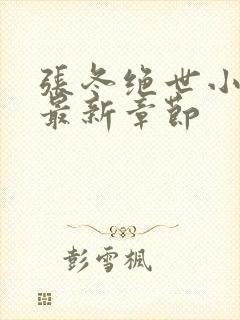 張冬绝世小
最新章節
彭雪楓